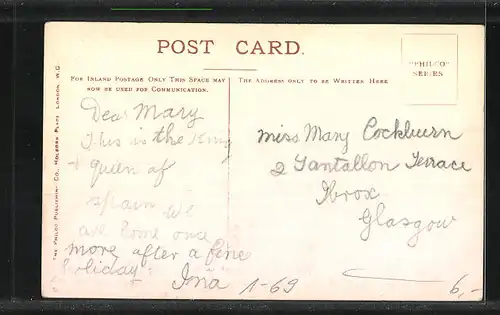 POST CARD.
"PHILCO"
SERIES
FOR INLAND POSTAGE ONLY THIS SPACE MAY
NOW BE USED FOR COMMUNICATION.
THE ADDRESS ONLY TO BE WRITTEN HERE
THE PHILCO PUBLISHING CO., HOLBORN PLACE LONDON, W.C.
Dear Mary
This is the King
+ Queen of
Spain We
are home once
more after a fine
holiday.
Ina
1-69
Miss Mary Cockburn
2 Tantallon Terrace
Ibrox
Glasgow
6,-